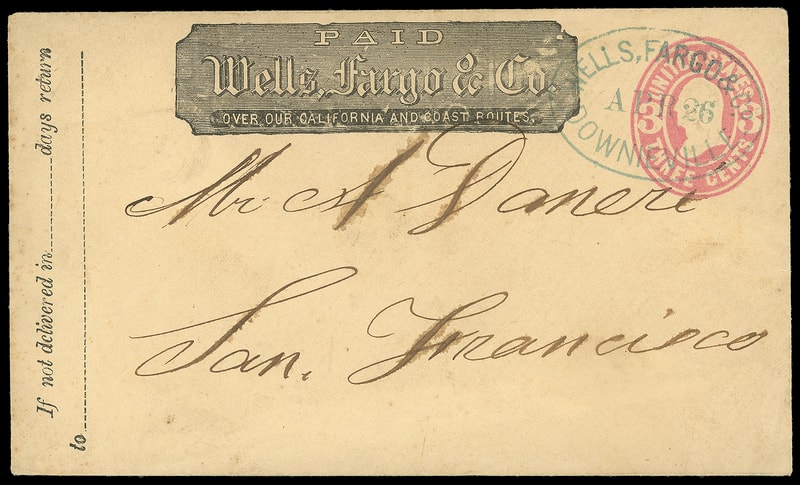 PAID
Wells, Fargo & Co.
OVER OUR CALIFORNIA AND COAST ROUTES.
WELLS, FARGO & Co.
APR 26
DOWNIEVILLE
UNITED STATES
3 3
THREE CENTS
Mr. A Daneri
San. Francisco
If not delivered in days return
to